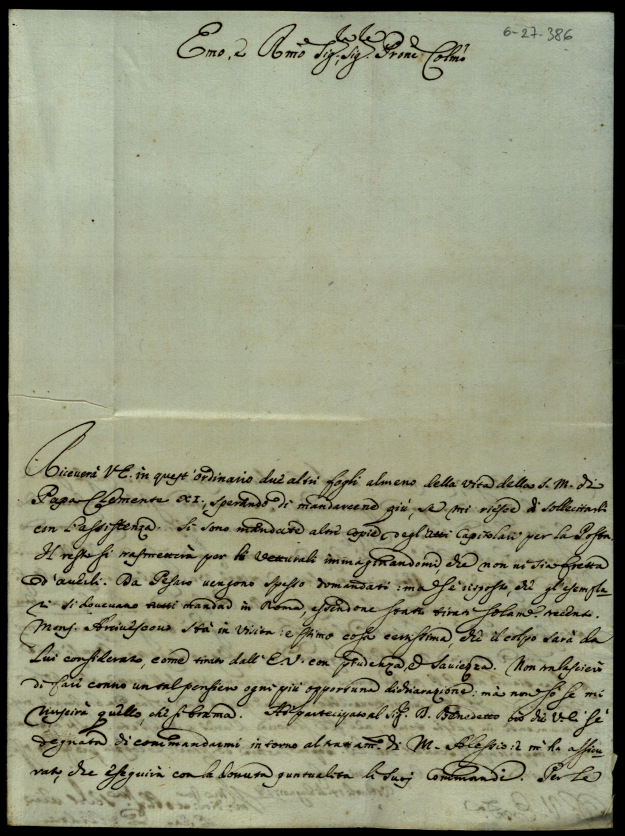 6-27-386
Emo, e Rmo Sig. Sig. Prone Colmo
Riceverà V E. in quest'ordinario due altri fogli almeno della vita della S. M. di
Papa Clemente XI., sperando di mandarcene più, se mi riesce di sollecitarli
con l'assistenza. Si sono mandate altre copie degli Atti Capitolari per la Posta.
Il resto si trasmetterà per li Vetturali immaginandomi, che non vi sia fretta
d'averli. Da Pesaro vengono spesso domandati: ma s'è risposto, che gl'esempla
ri si dovevano tutti mandar in Roma, essendone stati tirati solam.e
Mons. Arcivescovo stà in Visita: e stimo cosa certissima, che il colpo sarà da
Lui considerato, come tirato dall'E.V. con prudenza, e Saviezza. Non tralascierò
di fare un tal pensiero ogni più opportuna dichiarazione: mà non so se mi
riuscirà quello che si brama. Hò partecipato al Sig. D. Benedetto ciò che V. E. s'è
degnata di commandarmi intorno al di M. : e m'ha assicu
rato, che eseguirà con la dovuta puntualità li Suoi Commandi. Per le